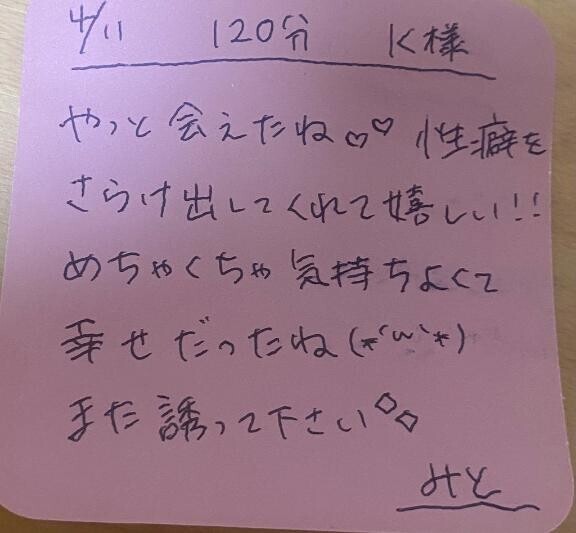 4/11 120分 K様
やっと会えたね♡♡ 性癖を
さらけ出してくれて嬉しい!!
めちゃくちゃ気持ちよくて
幸せだったね(*´ω`*)
また誘って下さい◇◇
みと